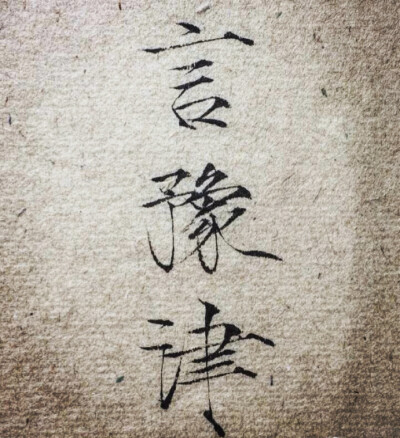 言豫津